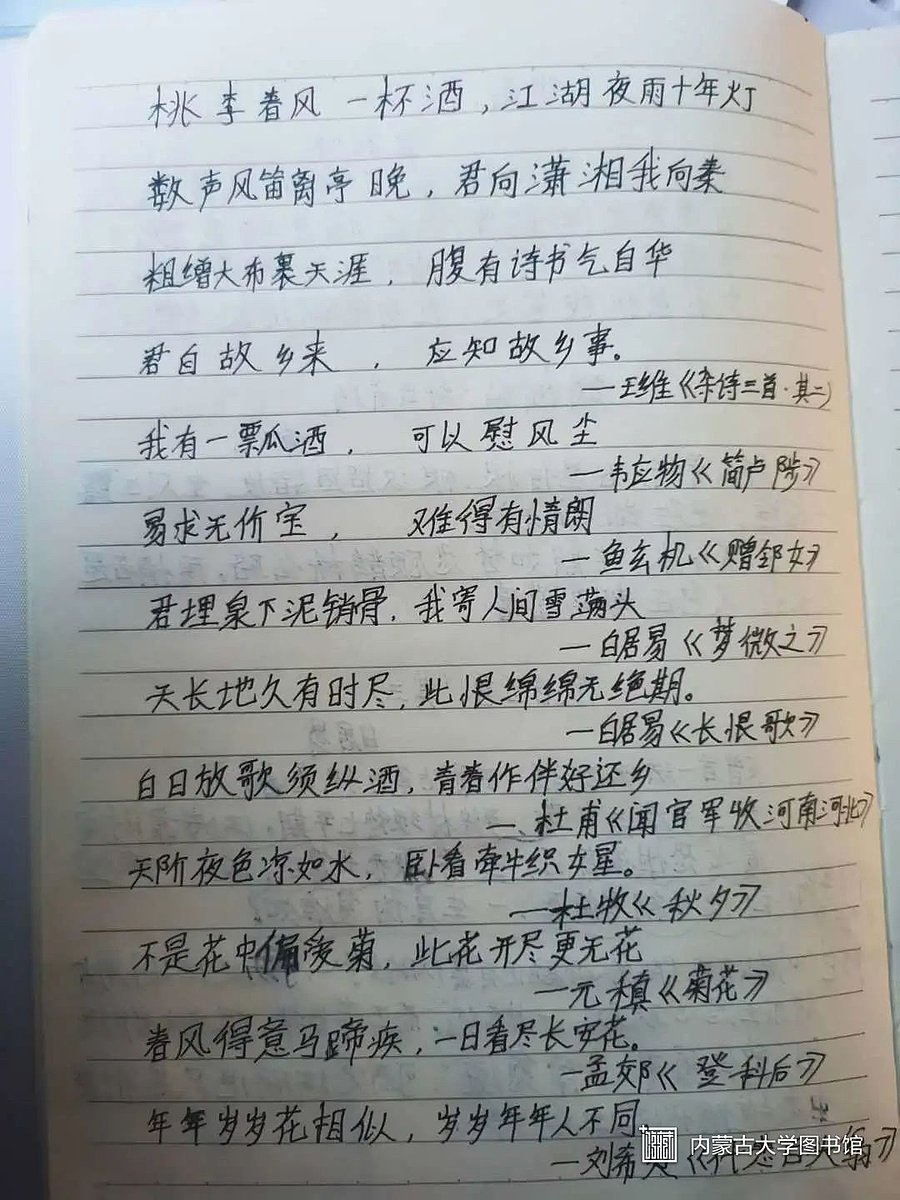 桃李春风一杯酒,江湖夜雨十年灯
数声风笛离亭晚,君向潇湘我向秦
粗缯大布裹天涯,腹有诗书气自华
君自故乡来,应知故乡事。
—王维《杂诗三首·其二》
我有一瓢酒,可以慰风尘
—韦应物《简卢陟》
易求无价宝,难得有情郎
—鱼玄机《赠邻女》
君埋泉下泥销骨,我寄人间雪满头
—白居易《梦微之》
天长地久有时尽,此恨绵绵无绝期。
—白居易《长恨歌》
白日放歌须纵酒,青春作伴好还乡
—杜甫《闻官军收河南河北》
天阶夜色凉如水,卧看牵牛织女星。
—杜牧《秋夕》
不是花中偏爱菊,此花开尽更无花
—元稹《菊花》
春风得意马蹄疾,一日看尽长安花。
—孟郊《登科后》
年年岁岁花相似,岁岁年年人不同
—刘希夷《代悲白头翁》
内蒙古大学图书馆